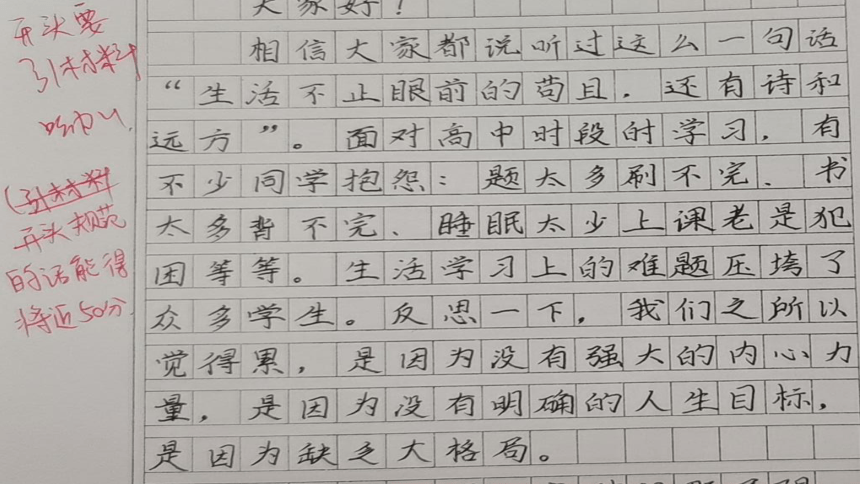 大家好！
相信大家都说听过这么一句话
“生活不止眼前的苟且，还有诗和
远方”。面对高中时段的学习，有
不少同学抱怨：题太多刷不完、书
太多背不完、睡眠太少上课老是犯
困等等。生活学习上的难题压垮了
众多学生。反思一下，我们之所以
觉得累，是因为没有强大的内心力
量，是因为没有明确的人生目标，
是因为缺乏大格局。
开头要
引材料
(引材料
开头规范
的话能得
将近50分